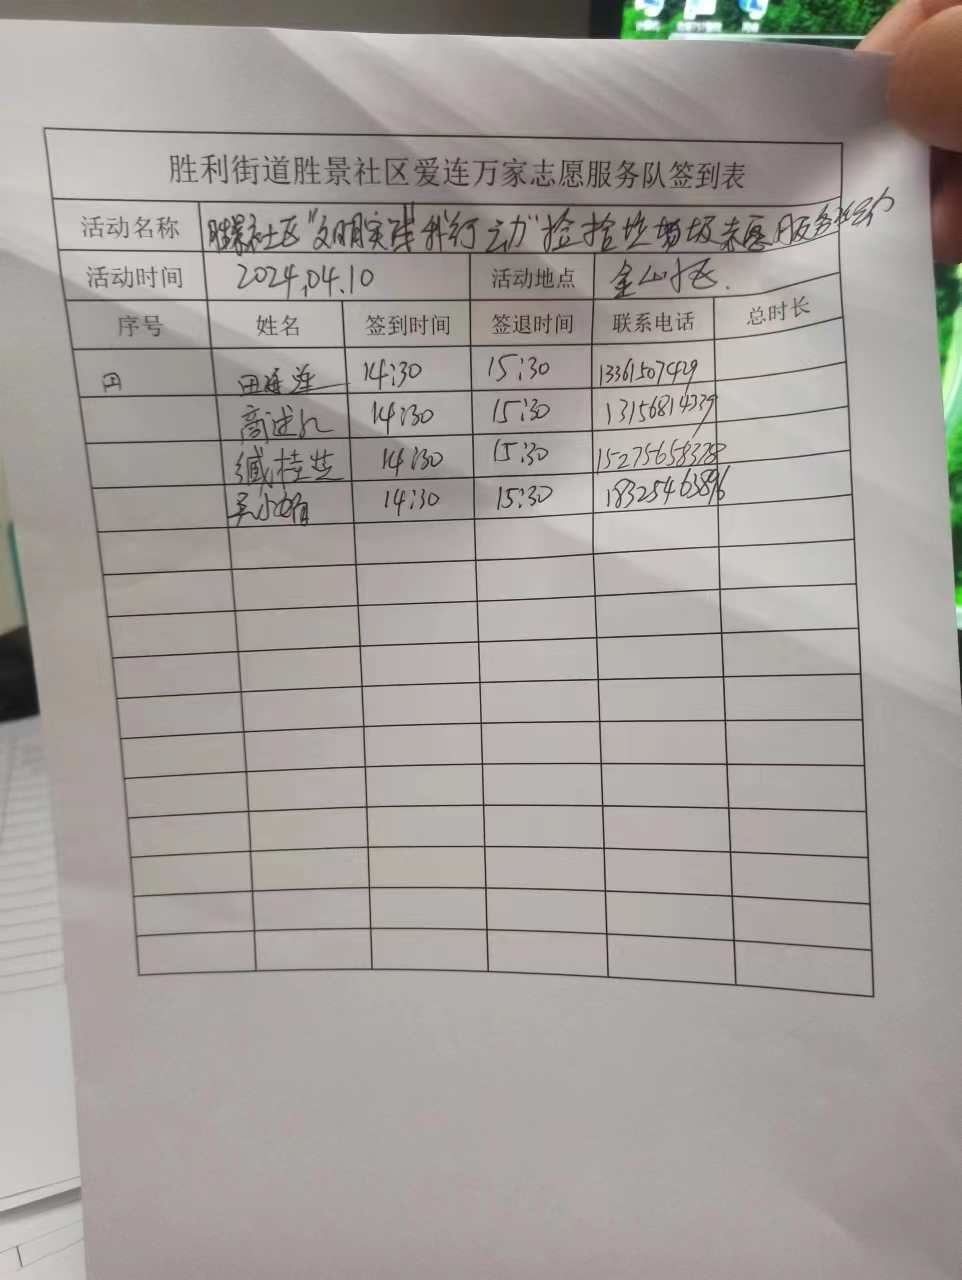 胜利街道胜景社区爱连万家志愿服务队签到表
活动名称 胜景社区"文明实践我行动"捡拾垃圾志愿服务活动
活动时间 2024.04.10 活动地点 金山小区.
序号 姓名 签到时间 签退时间 联系电话 总时长
田 田连莲 14:30 15:30 13361507429
商述 14:30 15:30 13156814339
臧桂芝 14:30 15:30 15275658328
吴小娟 14:30 15:30 18325463896